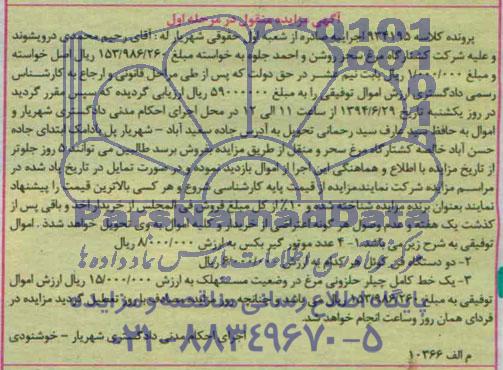 آگهی مزایده منقول در مرحله اول
پرونده کلاسه ۹۳۴۱۹۵ اجراییه صادره از شعبه اول حقوقی شهریار له : آقای رحیم محمدی درویشوند
و علیه شرکت کشتارگاه مرغ سحر روشن و احمد جلوه به خواسته مبلغ ۱۵۳/۹۸۶/۲۶۰ ریال اصل خواسته
و مبلغ ۱/۰۰۰/۰۰۰ ریال بابت نیم عشر در حق دولت که پس از طی مراحل قانونی و ارجاع به کارشناس
رسمی دادگستری ارزش اموال توقیفی را به مبلغ ریال ارزیابی گردیده که سپس مقرر گردید
در روز یکشنبه تاریخ ۱۳۹۴/۶/۲۹ از ساعت ۱۱ الی ۱۲ در محل اجرای احکام مدنی دادگستری شهریار و
اموال به حافظ سید عارف سید رحمانی تحویل به آدرس جاده سعید آباد - شهریار پل بادامک ابتدای جاده
حسن آباد خالصه کشتارگاه مرغ سحر و منقل از طریق مزایده بفروش برسد طالبین می توانند ۵ روز جلوتر
از تاریخ مزایده با اطلاع و هماهنگی این اجرا از اموال بازدید نموده و در صورت تمایل در تاریخ یاد شده در
مراسم مزایده شرکت نمایند.مزایده از قیمت پایه کارشناسی شروع و هر کسی بالاترین قیمت را پیشنهاد
نمایند بعنوان برنده مزایده شناخته شده و ۱۰٪ از کل مبلغ فروش فی المجلس از خریدار اخذ و باقی پس از
گذشت یک هفته و عدم وصول هر گونه اعتراضی از خریدار و کلیه اموال به وی تحویل خواهد شد . اموال
توقیفی به شرح زیر می باشد ۱- ۴ عدد موتور گیر بکس به ارزش ۸/۰۰۰/۰۰۰ ریال
۲- دو دستگاه هر کدام به ارزش ریال
۳- یک خط کامل چیلر حلزونی مرغ در وضعیت مستهلک به ارزش ۱۵/۰۰۰/۰۰۰ ریال ارزش اموال
توقیفی به مبلغ ۱۵۳/۹۸۶/۲۶۰ ریال می باشد و چنانچه روز مزایده مصادف با روز تعطیل گردید مزایده در
فردای همان روز و ساعت انجام خواهد شد.
اجرای احکام مدنی دادگستری شهریار - خوشنودی
م الف ۱۰۳۶۶
ParsNamadData
پایگاه اطلاع رسانی مناقصه و مزایده
۰۲۱-۸۸۳۴۹۶۷۰-۵